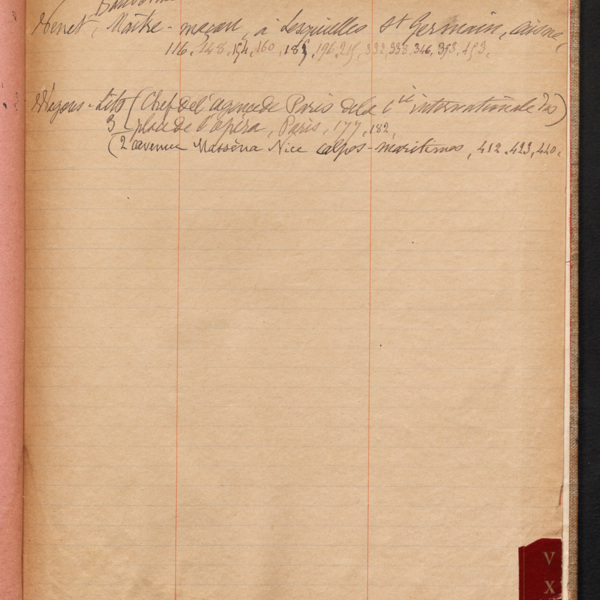 Venet, Maître-maçon, à Lesquielles St Germain, aisne,
116, 148, 154, 160, 189, 196, 215, 333, 338, 346, 393, 453.
Wagons-Lits (Chef de l'agence de Paris de la Cie internationale Ds)
3 place de l'opéra, Paris, 177, 182,
(2 avenue Masséna Nice alpes-maritimes, 412, 423, 440.
V
X